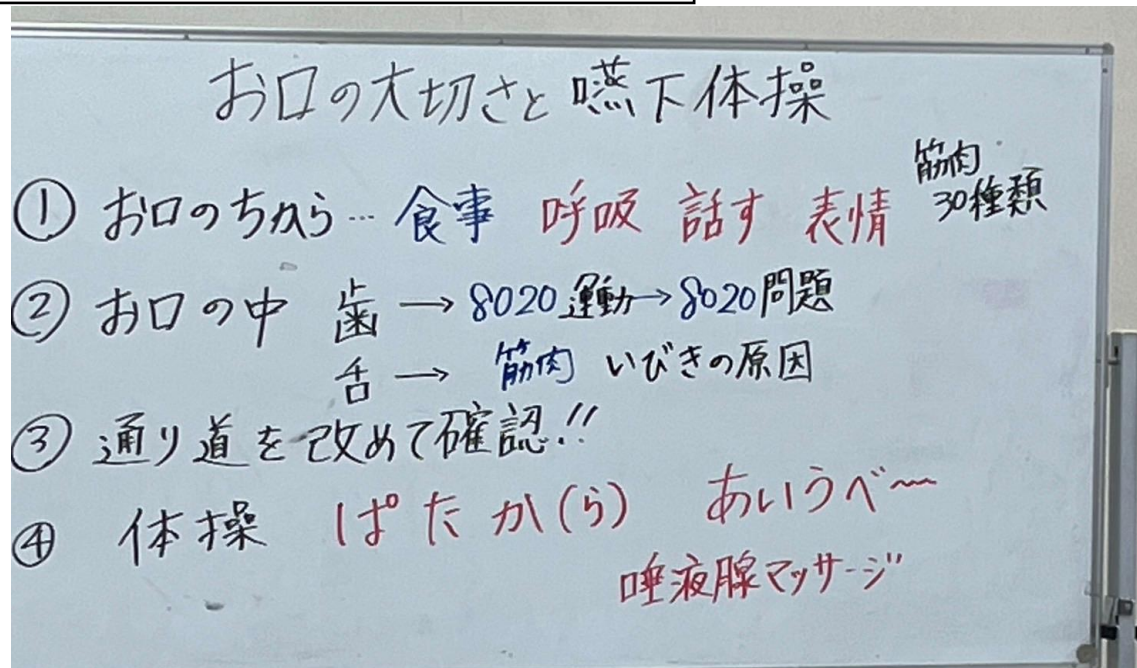 お口の大切さと嚥下体操
筋肉
30種類
① お口のちから… 食事 呼吸 話す 表情
② お口の中 歯 → 8020運動 → 8020問題
舌 → 筋肉 いびきの原因
③ 通り道を改めて確認!!
④ 体操 ぱたか(ら) あいうべ〜
唾液腺マッサージ